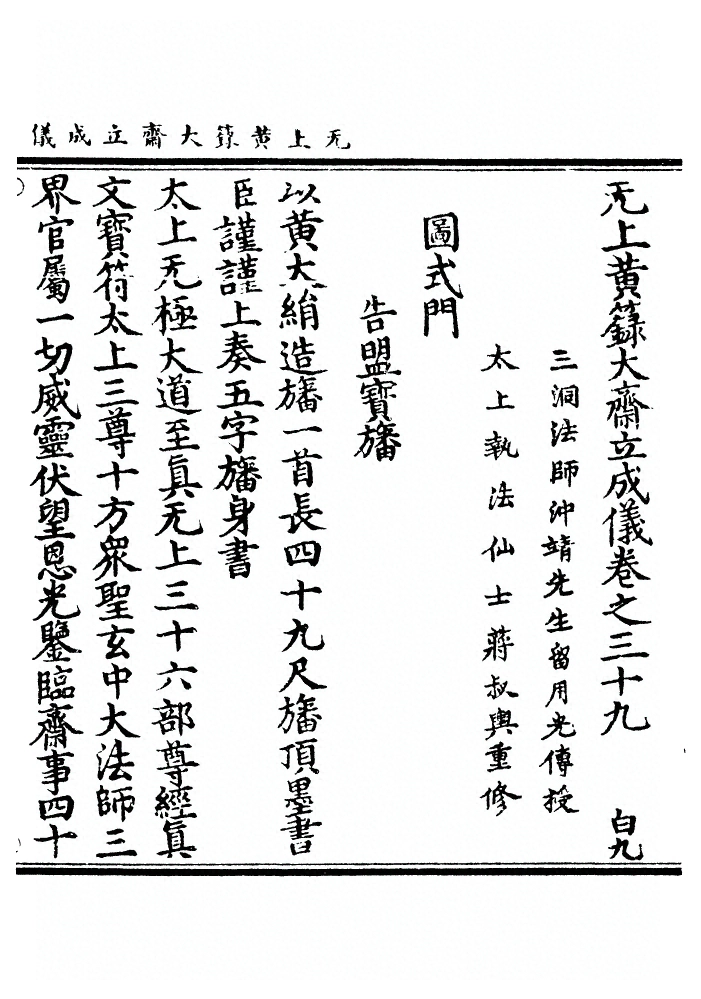 无上黃籙大齋立成儀
无上黃籙大齋立成儀卷之三十九 白九
三洞法師沖靖先生留用光傳授
太上執法仙士蔣叔輿重修
圖式門
告盟寶旛
以黃大絹造旛一首長四十九尺旛頂墨書
臣謹謹上奏五字旛身書
太上无極大道至眞无上三十六部尊經眞
文寶符太上三尊十方衆聖玄中大法師三
界官屬一切威靈伏望恩光鑒臨齋事四十